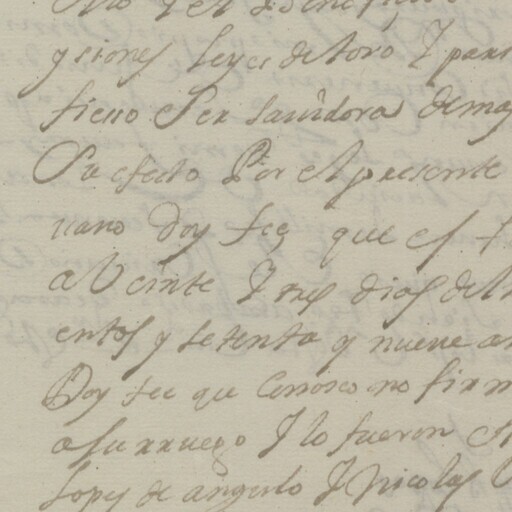 ysiones Leyes de toro Y par
fieso Ser Savidora de mas
Su efecto Por el presente
uano Doy fee que es f
a Veinte Y tres dias del
entos y setenta y nueve a
Doy fee que Conosco no firm
a su rruego Y lo fueron
Lopes de angulo Y Nicolas